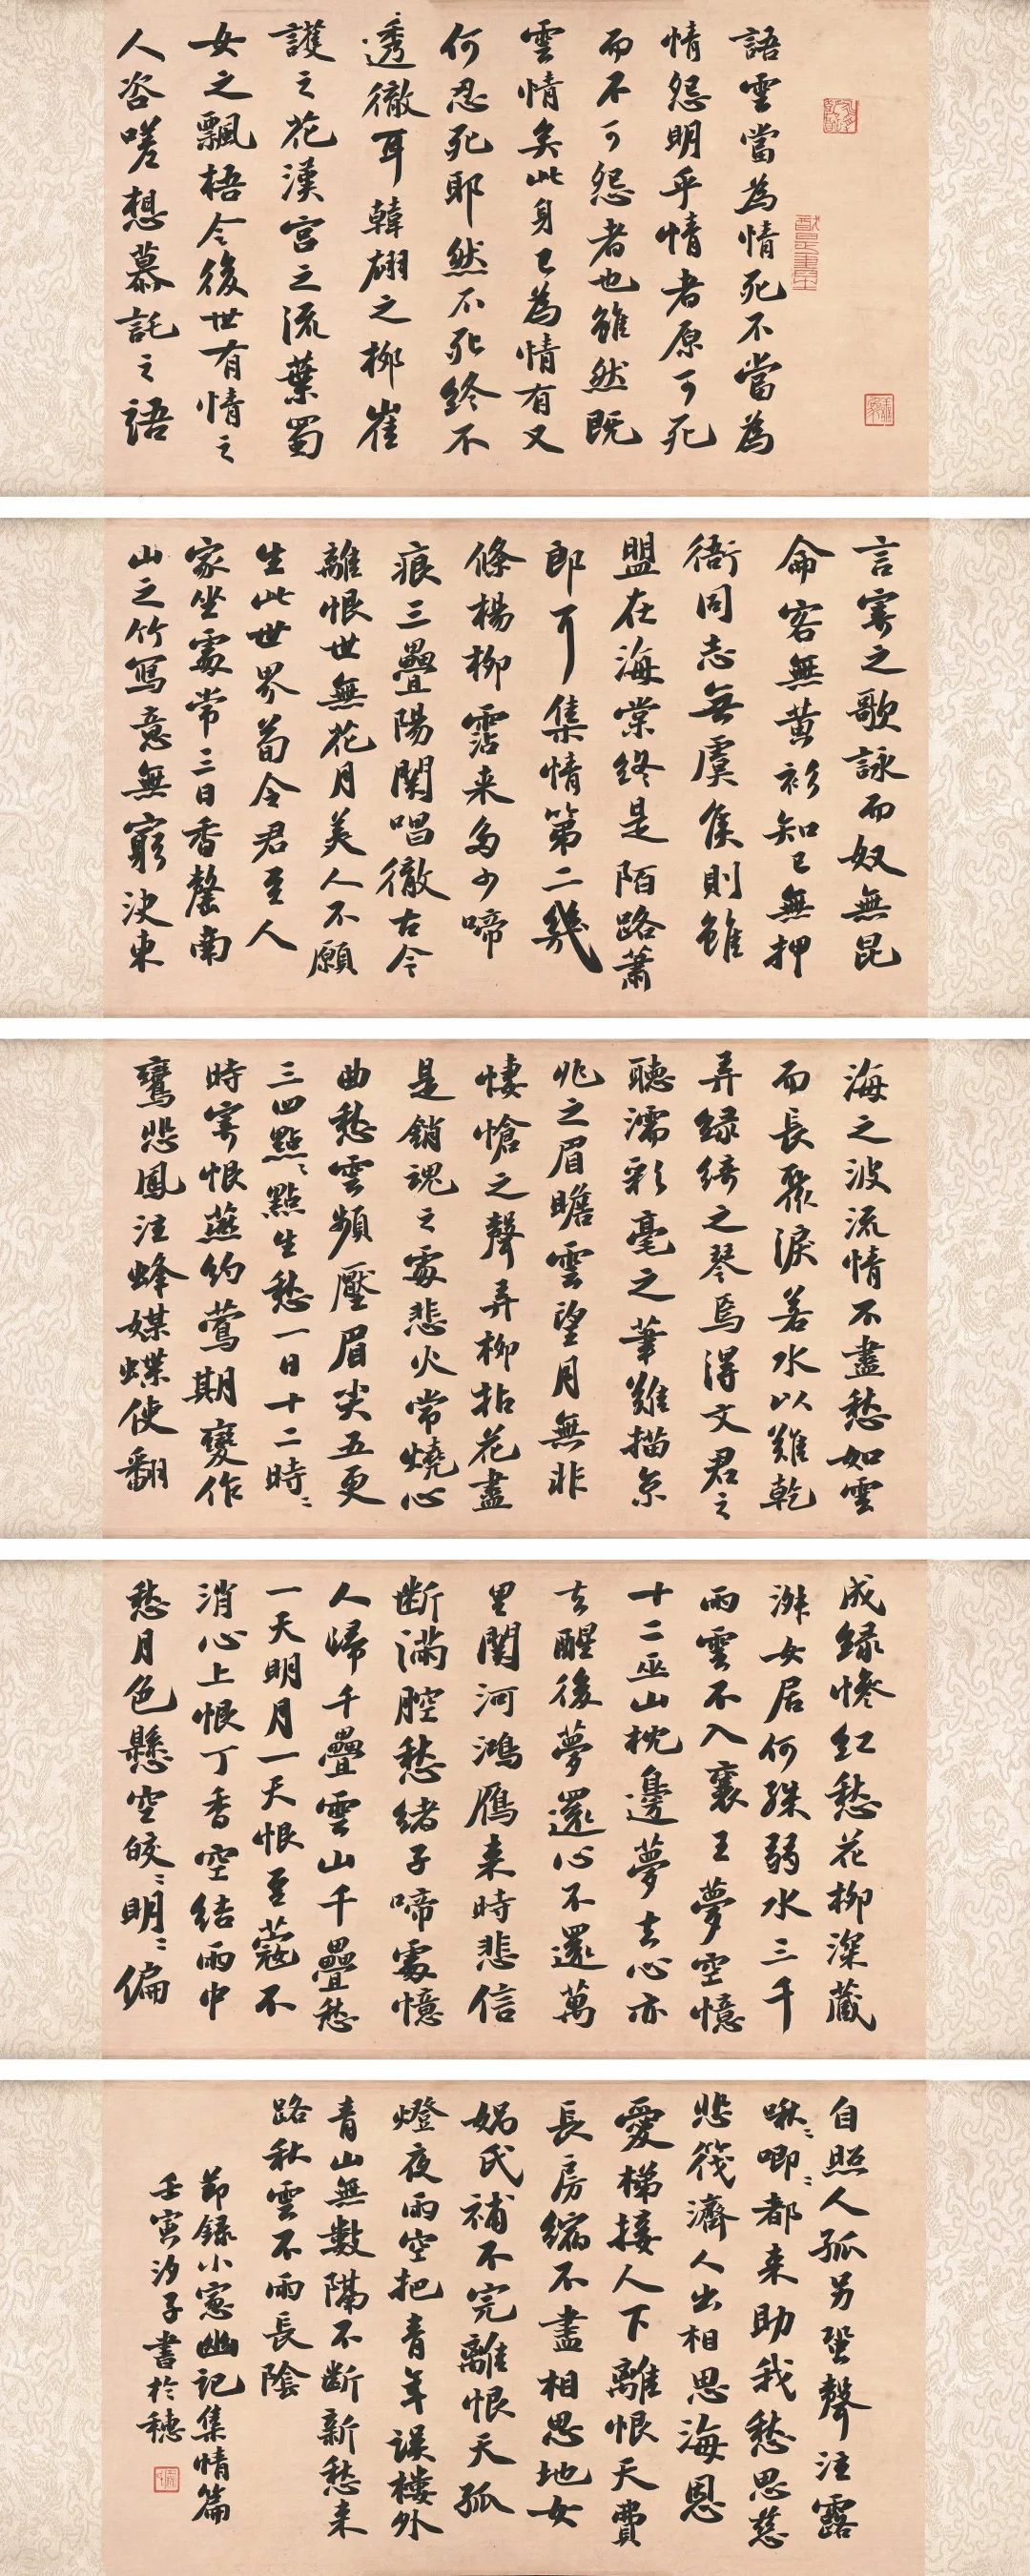 語雲當為情死不當為
情怨明乎情者原可死
而不可怨者也雖然既
雲情矣此身已為情有又
何忍死耶然不死終不
透徹耳韓翃之柳崔
護之花漢宮之流葉蜀
女之飄梧令後世有情之
人咨嗟想慕託之語
言寄之歌詠而奴無昆
侖客無黃衫知己無押
衙同志無虞侯則雖
盟在海棠終是陌路蕭
郎耳集情第二幾
條楊柳霑来多少啼
痕三疊陽関唱徹古今
離恨世無花月美人不願
生此世界荀令君至人
家坐處常三日香罄南
山之竹寫意無窮決東
海之波流情不盡愁如雲
而長聚淚若水以難乾
弄緑綺之琴焉得文君之
聽濡彩毫之筆難描京
兆之眉瞻雲望月無非
悽愴之聲弄柳拈花盡
是銷魂之處悲火常燒心
曲愁雲頻壓眉尖五更
三四點點點生愁一日十二時時
時寄恨燕約鶯期變作
鸞悲鳳泣蜂媒蝶使翻
成緑慘紅愁花柳深藏
淑女居何殊弱水三千
雨雲不入襄王夢空憶
十二巫山枕邊夢去心亦
去醒後夢還心不還萬
里関河鴻雁来時悲信
斷滿腔愁緒子啼處憶
人歸千疊雲山千疊愁
一天明月一天恨荳蔻不
消心上恨丁香空結雨中
愁月色懸空皎皎明明偏
自照人孤另蛩聲泣露
啾啾唧唧都来助我愁思慈
悲筏濟人出相思海恩
愛梯接人下離恨天費
長房縮不盡相思地女
媧氏補不完離恨天孤
燈夜雨空把青年誤樓外
青山無數隔不斷新愁来
路秋雲不雨長陰
節録小窓幽記集情篇
壬寅汐子書於穗